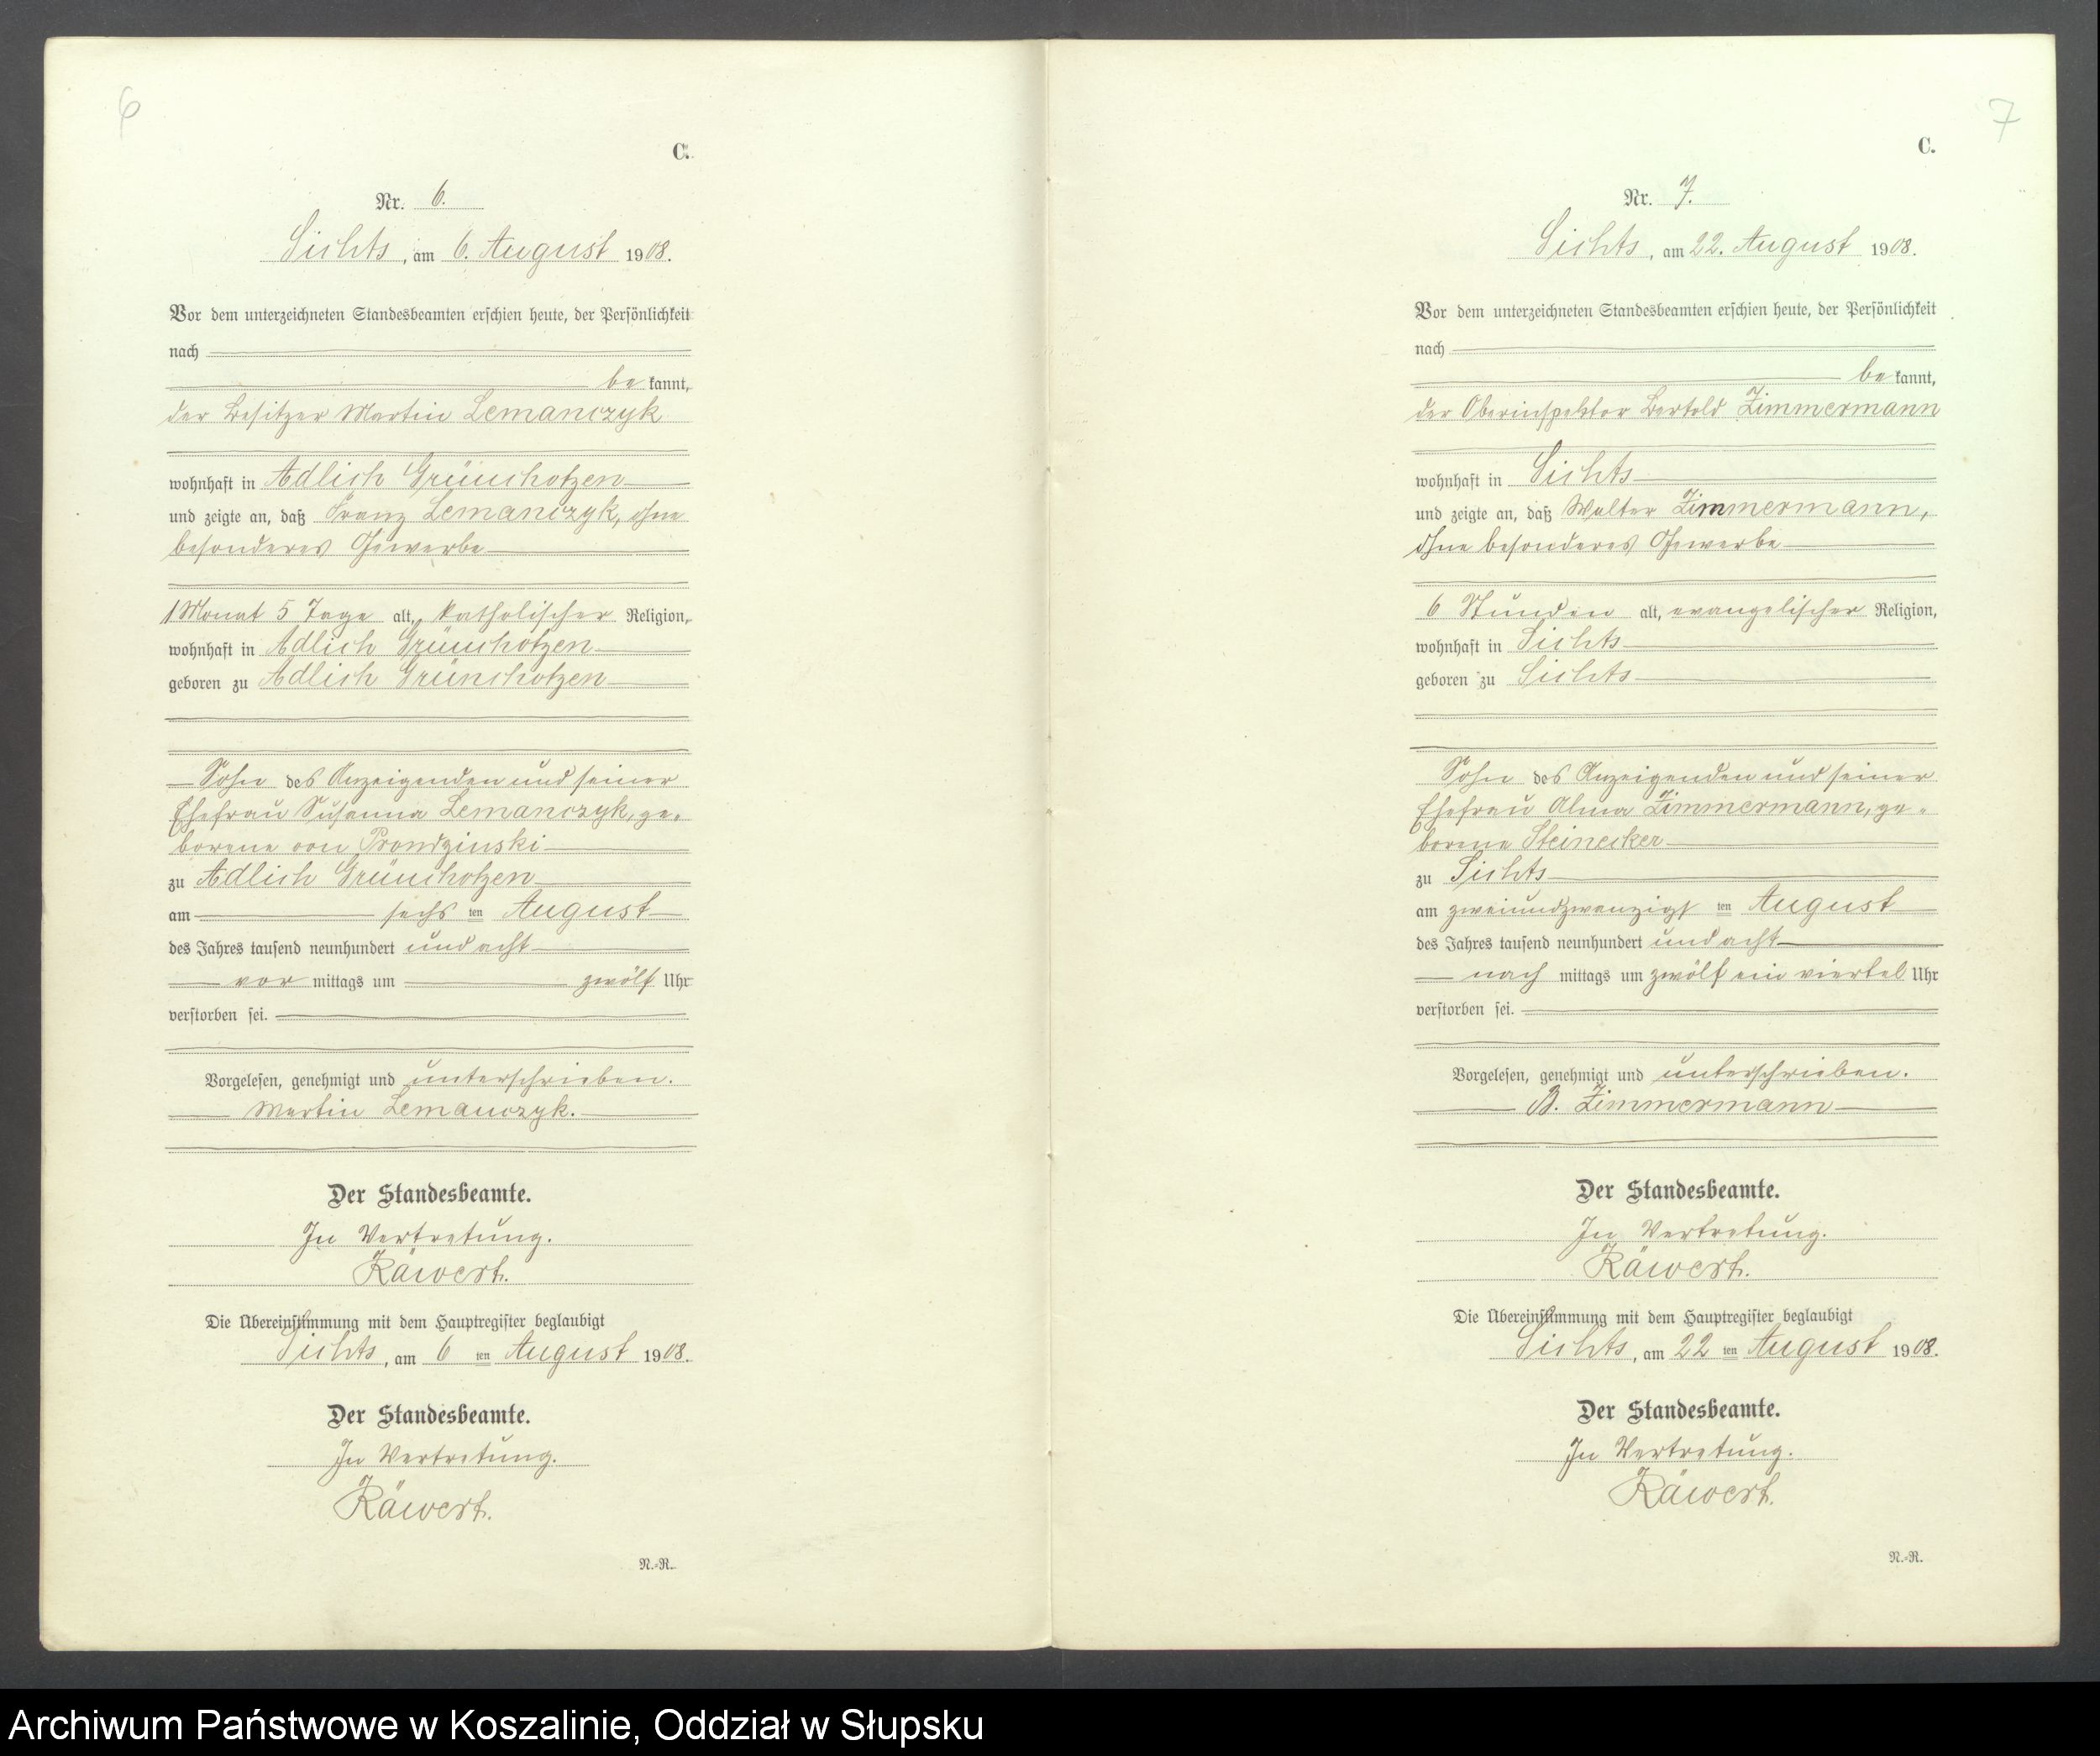 6
C.
Nr. 6.
Sichts, am 6. August 1908.
Vor dem unterzeichneten Standesbeamten erschien heute, der Persönlichkeit
nach
be kannt,
der Besitzer Martin Lemanczyk
wohnhaft in Adlich Grünchotzen
und zeigte an, daß Franz Lemanczyk, ohne
besonderes Gewerbe
1 Monat 5 Tage alt, katholischer Religion,
wohnhaft in Adlich Grünchotzen
geboren zu Adlich Grünchotzen
Sohn des Anzeigenden und seiner
Ehefrau Susanna Lemanczyk, ge-
borene von Prondzinski
zu Adlich Grünchotzen
am sechs ten August
des Jahres tausend neunhundert und acht
vor mittags um zwölf Uhr
verstorben sei.
Vorgelesen, genehmigt und unterschrieben.
Martin Lemanczyk.
Der Standesbeamte.
In Vertretung.
Räwert.
Die Übereinstimmung mit dem Hauptregister beglaubigt
Sichts, am 6 ten August 1908.
Der Standesbeamte.
In Vertretung.
Räwert.
N.-R.
7
C.
Nr. 7.
Sichts, am 22. August 1908.
Vor dem unterzeichneten Standesbeamten erschien heute, der Persönlichkeit
nach
be kannt,
der Oberinspektor Bertold Zimmermann
wohnhaft in Sichts
und zeigte an, daß Walter Zimmermann,
ohne besonderes Gewerbe
6 Stunden alt, evangelischer Religion,
wohnhaft in Sichts
geboren zu Sichts
Sohn des Anzeigenden und seiner
Ehefrau Alma Zimmermann, ge-
borene Steinecker
zu Sichts
am zweiundzwanzigs ten August
des Jahres tausend neunhundert und acht
nach mittags um zwölf ein viertel Uhr
verstorben sei.
Vorgelesen, genehmigt und unterschrieben.
B. Zimmermann
Der Standesbeamte.
In Vertretung.
Räwert.
Die Übereinstimmung mit dem Hauptregister beglaubigt
Sichts, am 22 ten August 1908.
Der Standesbeamte.
In Vertretung.
Räwert.
N.-R.
Archiwum Państwowe w Koszalinie, Oddział w Słupsku